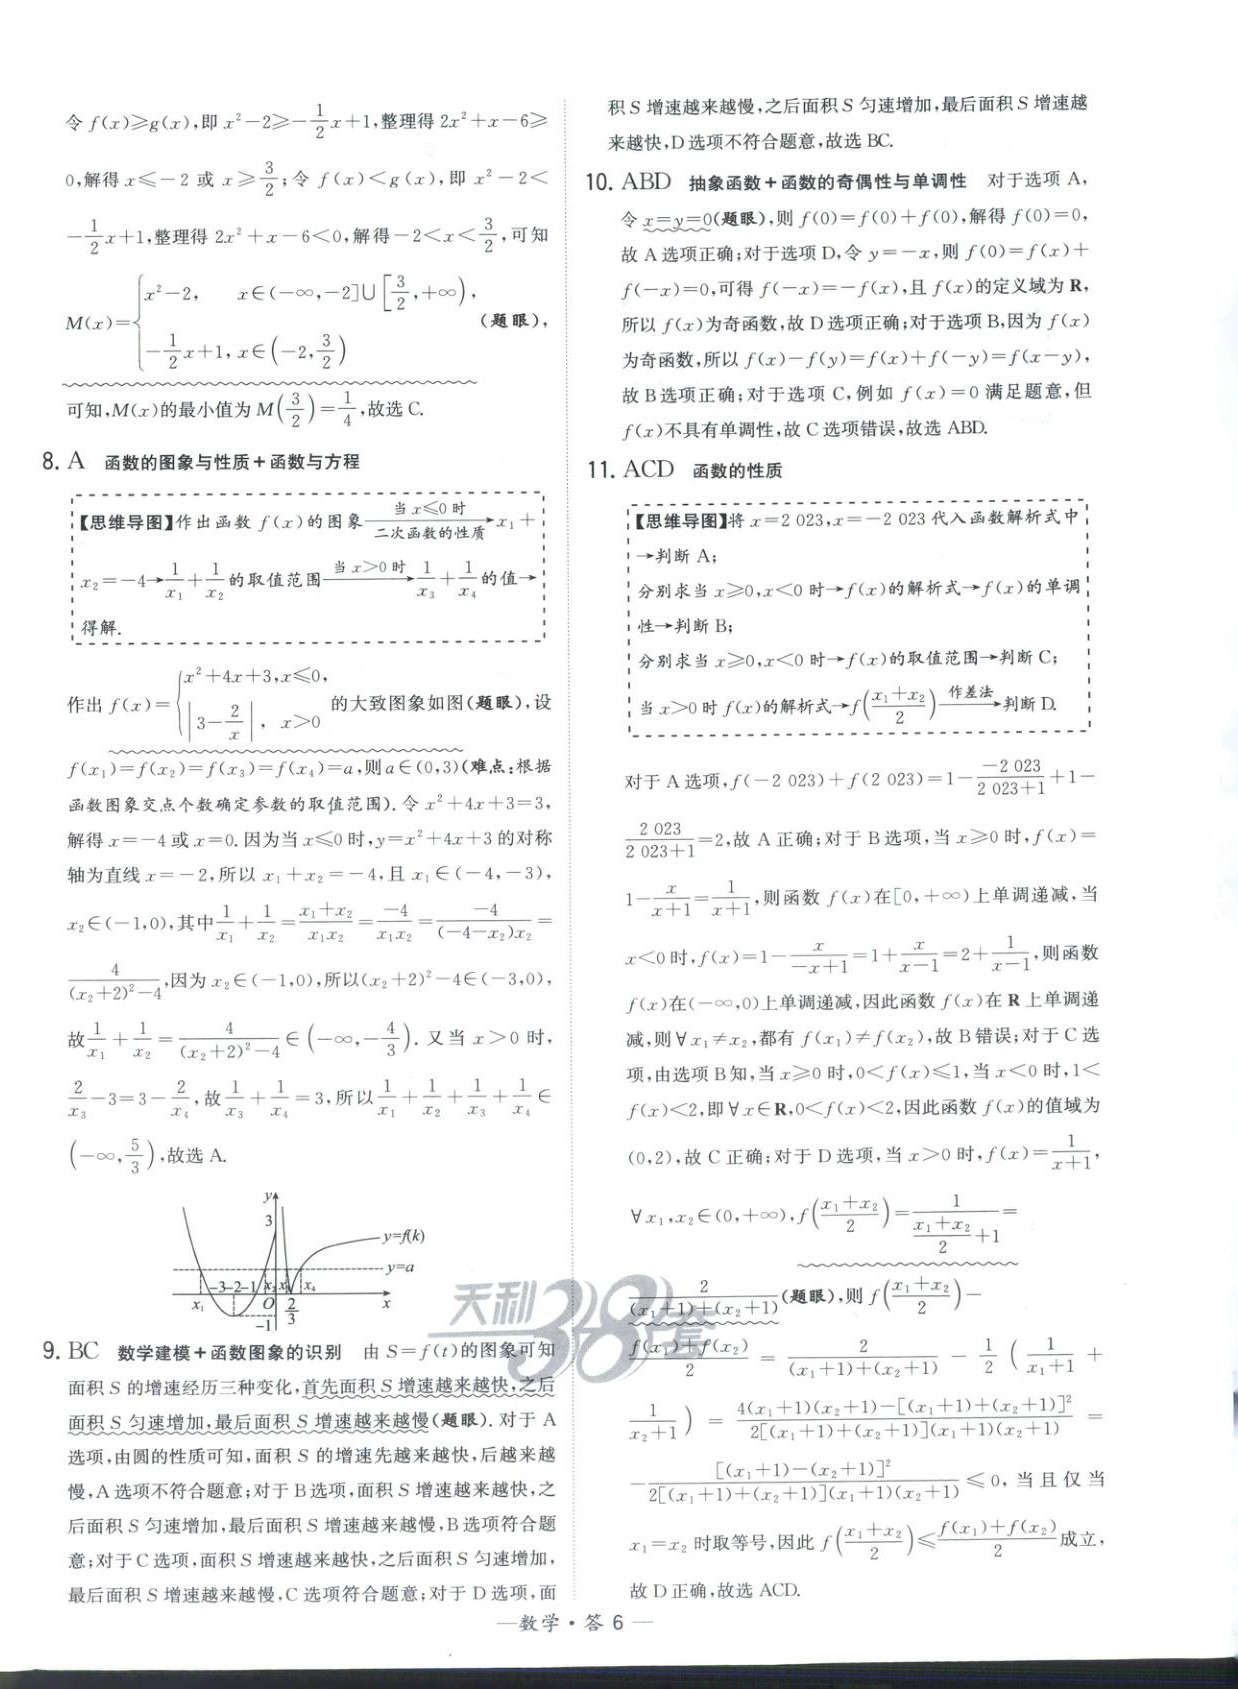 令 f(x)≥g(x),即 x²-2≥-1/2x+1,整理得 2x²+x-6≥
0,解得 x≤-2 或 x≥3/2;令 f(x)<g(x),即 x²-2<
-1/2x+1,整理得 2x²+x-6<0,解得-2<x<3/2,可知
M(x)={x²-2, x∈(-∞,-2]∪[3/2,+∞),
-1/2x+1, x∈(-2,3/2) (题眼),
可知,M(x)的最小值为 M(3/2)=1/4,故选 C.
8. A 函数的图象与性质+函数与方程
【思维导图】作出函数 f(x)的图象 当 x≤0 时 二次函数的性质→x₁+
x₂=-4→1/x₁+1/x₂的取值范围 当 x>0 时→1/x₃+1/x₄的值→
得解.
作出 f(x)={x²+4x+3,x≤0,
|3-2/x|, x>0 的大致图象如图(题眼),设
f(x₁)=f(x₂)=f(x₃)=f(x₄)=a,则a∈(0,3)(难点:根据
函数图象交点个数确定参数的取值范围). 令 x²+4x+3=3,
解得 x=-4 或 x=0. 因为当 x≤0 时,y=x²+4x+3 的对称
轴为直线 x=-2,所以 x₁+x₂=-4,且 x₁∈(-4,-3),
x₂∈(-1,0),其中1/x₁+1/x₂=(x₁+x₂)/(x₁x₂)=-4/(x₁x₂)=-4/((-4-x₂)x₂)=
4/((x₂+2)²-4),因为 x₂∈(-1,0),所以(x₂+2)²-4∈(-3,0),
故1/x₁+1/x₂=4/((x₂+2)²-4)∈(-∞,-4/3). 又当 x>0 时,
2/x₃-3=3-2/x₄,故1/x₃+1/x₄=3,所以1/x₁+1/x₂+1/x₃+1/x₄∈
(-∞,5/3),故选 A.
y
3
y=f(k)
y=a
-3-2-1 x₂ x₃ x₄
x₁ O 2/3 x
-1
9. BC 数学建模+函数图象的识别 由 S=f(t)的图象可知
面积 S 的增速经历三种变化,首先面积 S 增速越来越快,之后
面积 S 匀速增加,最后面积 S 增速越来越慢(题眼). 对于 A
选项,由圆的性质可知,面积 S 的增速先越来越快,后越来越
慢,A 选项不符合题意;对于 B 选项,面积 S 增速越来越快,之
后面积 S 匀速增加,最后面积 S 增速越来越慢,B 选项符合题
意;对于 C 选项,面积 S 增速越来越快,之后面积 S 匀速增加,
最后面积 S 增速越来越慢,C 选项符合题意;对于 D 选项,面
积 S 增速越来越慢,之后面积 S 匀速增加,最后面积 S 增速越
来越快,D 选项不符合题意,故选 BC.
10. ABD 抽象函数+函数的奇偶性与单调性 对于选项 A,
令 x=y=0(题眼),则 f(0)=f(0)+f(0),解得 f(0)=0,
故 A 选项正确;对于选项 D,令 y=-x,则 f(0)=f(x)+
f(-x)=0,可得 f(-x)=-f(x),且 f(x)的定义域为 R,
所以 f(x)为奇函数,故 D 选项正确;对于选项 B,因为 f(x)
为奇函数,所以 f(x)-f(y)=f(x)+f(-y)=f(x-y),
故 B 选项正确;对于选项 C,例如 f(x)=0 满足题意,但
f(x)不具有单调性,故 C 选项错误,故选 ABD.
11. ACD 函数的性质
【思维导图】将 x=2 023,x=-2 023 代入函数解析式中
→判断 A;
分别求当 x≥0,x<0 时→f(x)的解析式→f(x)的单调
性→判断 B;
分别求当 x≥0,x<0 时→f(x)的取值范围→判断 C;
当 x>0 时 f(x)的解析式→f((x₁+x₂)/2) 作差法→判断 D.
对于 A 选项,f(-2 023)+f(2 023)=1-(-2 023)/(2 023+1)+1-
2 023/(2 023+1)=2,故 A 正确;对于 B 选项,当 x≥0 时,f(x)=
1-x/(x+1)=1/(x+1),则函数 f(x)在[0,+∞)上单调递减,当
x<0 时,f(x)=1-x/(-x+1)=1+x/(x-1)=2+1/(x-1),则函数
f(x)在(-∞,0)上单调递减,因此函数 f(x)在 R 上单调递
减,则∀x₁≠x₂,都有 f(x₁)≠f(x₂),故 B 错误;对于 C 选
项,由选项 B 知,当 x≥0 时,0<f(x)≤1,当 x<0 时,1<
f(x)<2,即∀x∈R,0<f(x)<2,因此函数 f(x)的值域为
(0,2),故 C 正确;对于 D 选项,当 x>0 时,f(x)=1/(x+1),
∀x₁,x₂∈(0,+∞),f((x₁+x₂)/2)=1/((x₁+x₂)/2+1)=
2/((x₁+1)+(x₂+1))(题眼),则 f((x₁+x₂)/2)-
(f(x₁)+f(x₂))/2=2/((x₁+1)+(x₂+1))-1/2(1/(x₁+1)+
1/(x₂+1))=(4(x₁+1)(x₂+1)-[(x₁+1)+(x₂+1)]²)/(2[(x₁+1)+(x₂+1)](x₁+1)(x₂+1))=
-[(x₁+1)-(x₂+1)]²/(2[(x₁+1)+(x₂+1)](x₁+1)(x₂+1))≤0,当且仅当
x₁=x₂ 时取等号,因此 f((x₁+x₂)/2)≤(f(x₁)+f(x₂))/2成立,
故 D 正确,故选 ACD.
天利38套
—数学·答 6—